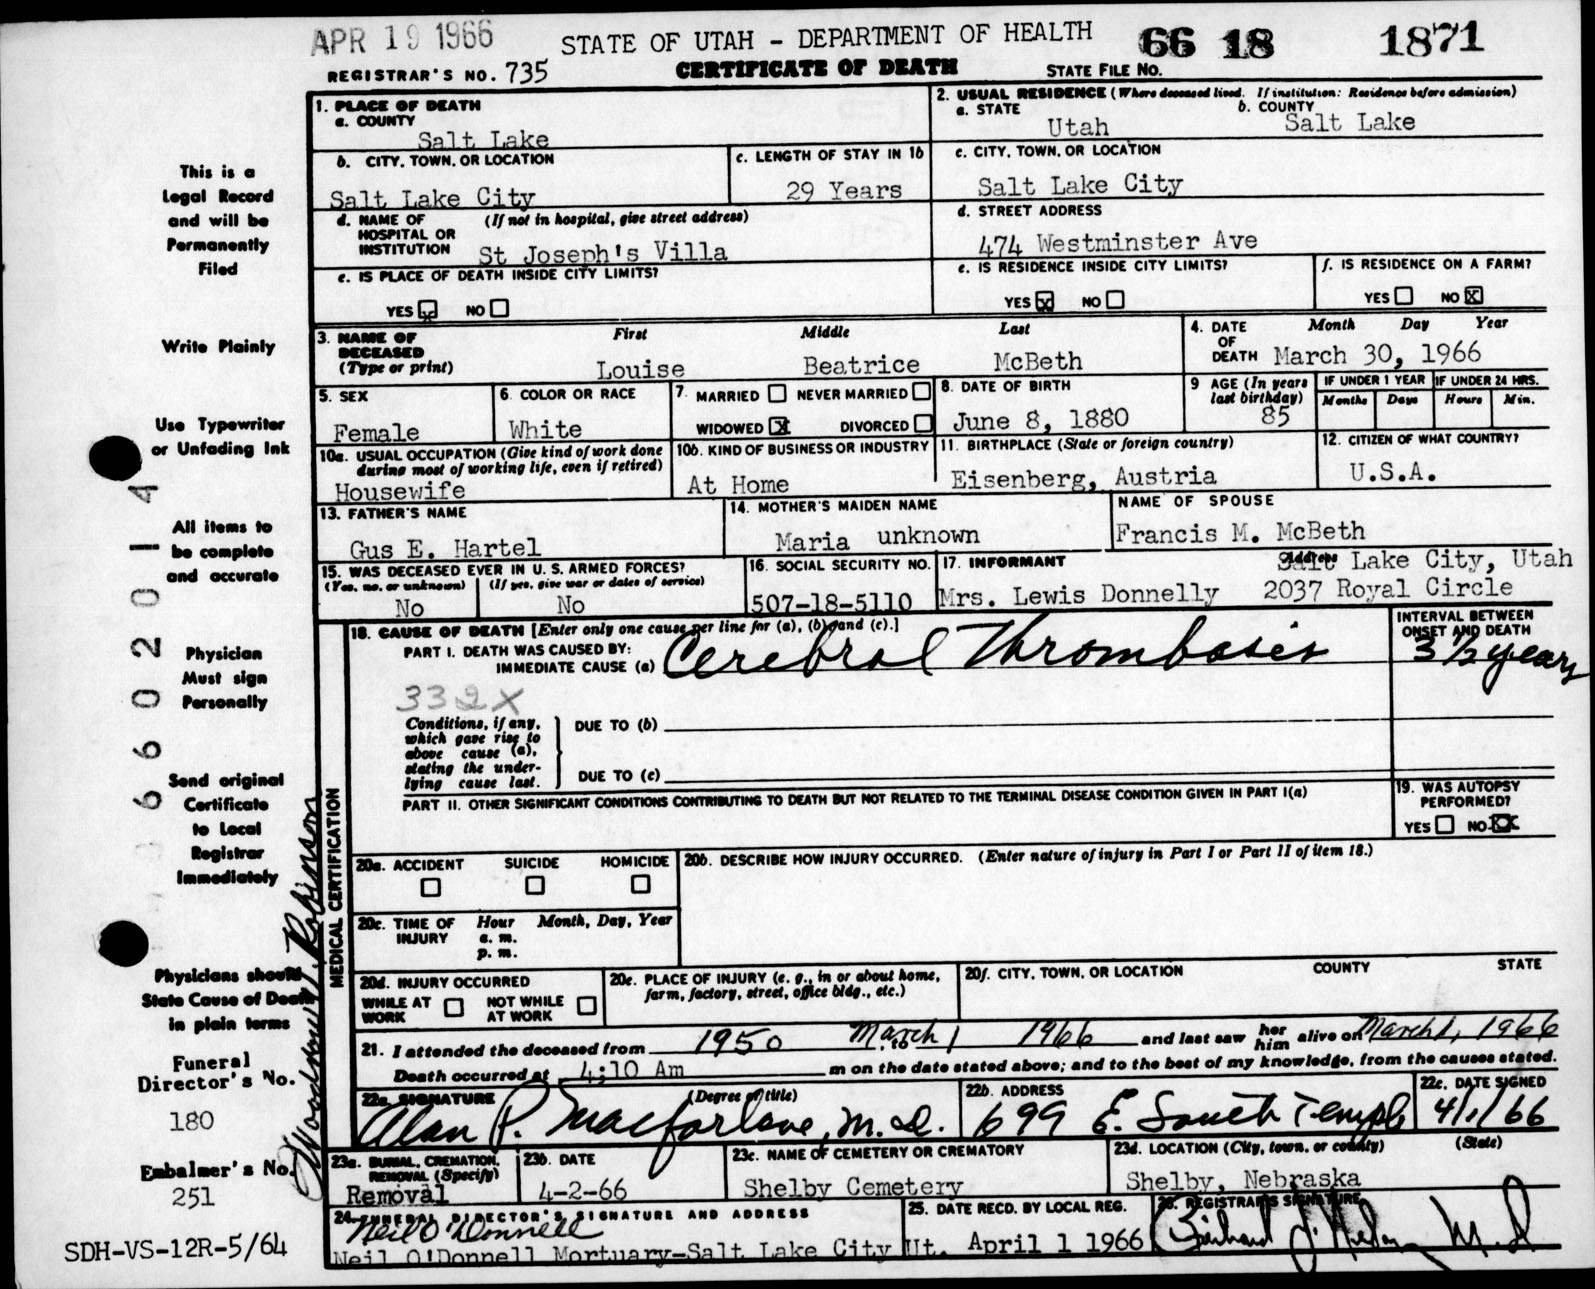 APR 19 1966
STATE OF UTAH - DEPARTMENT OF HEALTH
66 18 1871
REGISTRAR'S NO. 735
CERTIFICATE OF DEATH
STATE FILE NO.
This is a
Legal Record
and will be
Permanently
Filed
Write Plainly
Use Typewriter
or Unfading Ink
All items to
be complete
and accurate
Physician
Must sign
Personally
Send original
Certificate
to Local
Registrar
Immediately
Physicians should
State Cause of Death
in plain terms
Funeral
Director's No.
180
Embalmer's No.
251
SDH-VS-12R-5/64
1. PLACE OF DEATH
a. COUNTY
Salt Lake
2. USUAL RESIDENCE (Where deceased lived. If institution: Residence before admission)
a. STATE
Utah
b. COUNTY
Salt Lake
b. CITY, TOWN, OR LOCATION
Salt Lake City
c. LENGTH OF STAY IN 1b
29 Years
c. CITY, TOWN, OR LOCATION
Salt Lake City
d. NAME OF HOSPITAL OR INSTITUTION
(If not in hospital, give street address)
St Joseph's Villa
d. STREET ADDRESS
474 Westminster Ave
e. IS PLACE OF DEATH INSIDE CITY LIMITS?
YES X NO
e. IS RESIDENCE INSIDE CITY LIMITS?
YES X NO
f. IS RESIDENCE ON A FARM?
YES NO X
3. NAME OF DECEASED
(Type or print)
First Middle Last
Louise Beatrice McBeth
4. DATE OF DEATH
Month Day Year
March 30, 1966
5. SEX
Female
6. COLOR OR RACE
White
7. MARRIED NEVER MARRIED
WIDOWED X DIVORCED
8. DATE OF BIRTH
June 8, 1880
9 AGE (In years last birthday)
85
IF UNDER 1 YEAR
Months Days
IF UNDER 24 HRS.
Hours Min.
10a. USUAL OCCUPATION (Give kind of work done during most of working life, even if retired)
Housewife
10b. KIND OF BUSINESS OR INDUSTRY
At Home
11. BIRTHPLACE (State or foreign country)
Eisenberg, Austria
12. CITIZEN OF WHAT COUNTRY?
U.S.A.
13. FATHER'S NAME
Gus E. Hartel
14. MOTHER'S MAIDEN NAME
Maria unknown
NAME OF SPOUSE
Francis M. McBeth
15. WAS DECEASED EVER IN U.S. ARMED FORCES?
(Yes, no, or unknown) (If yes, give war or dates of service)
No No
16. SOCIAL SECURITY NO.
507-18-5110
17. INFORMANT
Address
Salt Lake City, Utah
Mrs. Lewis Donnelly 2037 Royal Circle
MEDICAL CERTIFICATION
18. CAUSE OF DEATH [Enter only one cause per line for (a), (b) and (c).]
PART I. DEATH WAS CAUSED BY:
IMMEDIATE CAUSE (a) Cerebral Thrombosis
INTERVAL BETWEEN ONSET AND DEATH
3 1/2 years
332X
Conditions, if any, which gave rise to above cause (a), stating the underlying cause last.
DUE TO (b)
DUE TO (c)
PART II. OTHER SIGNIFICANT CONDITIONS CONTRIBUTING TO DEATH BUT NOT RELATED TO THE TERMINAL DISEASE CONDITION GIVEN IN PART I(a)
19. WAS AUTOPSY PERFORMED?
YES NO X
20a. ACCIDENT SUICIDE HOMICIDE
20b. DESCRIBE HOW INJURY OCCURRED. (Enter nature of injury in Part I or Part II of item 18.)
20c. TIME OF INJURY
Hour Month, Day, Year
a. m.
p. m.
20d. INJURY OCCURRED
WHILE AT WORK NOT WHILE AT WORK
20e. PLACE OF INJURY (e. g., in or about home, farm, factory, street, office bldg., etc.)
20f. CITY, TOWN, OR LOCATION COUNTY STATE
21. I attended the deceased from 1950 to March 1 1966 and last saw her him alive on March 1, 1966
Death occurred at 4:10 Am m on the date stated above; and to the best of my knowledge, from the causes stated.
22a. SIGNATURE (Degree or title)
Alan P. Macfarlane, M.D.
22b. ADDRESS
699 E. South Temple
22c. DATE SIGNED
4/1/66
23a. BURIAL, CREMATION, REMOVAL (Specify)
Removal
23b. DATE
4-2-66
23c. NAME OF CEMETERY OR CREMATORY
Shelby Cemetery
23d. LOCATION (City, town, or county) (State)
Shelby, Nebraska
24. FUNERAL DIRECTOR'S SIGNATURE AND ADDRESS
Neil O'Donnell
Neil O'Donnell Mortuary-Salt Lake City Ut.
25. DATE RECD. BY LOCAL REG.
April 1 1966
26. REGISTRAR'S SIGNATURE
M.D